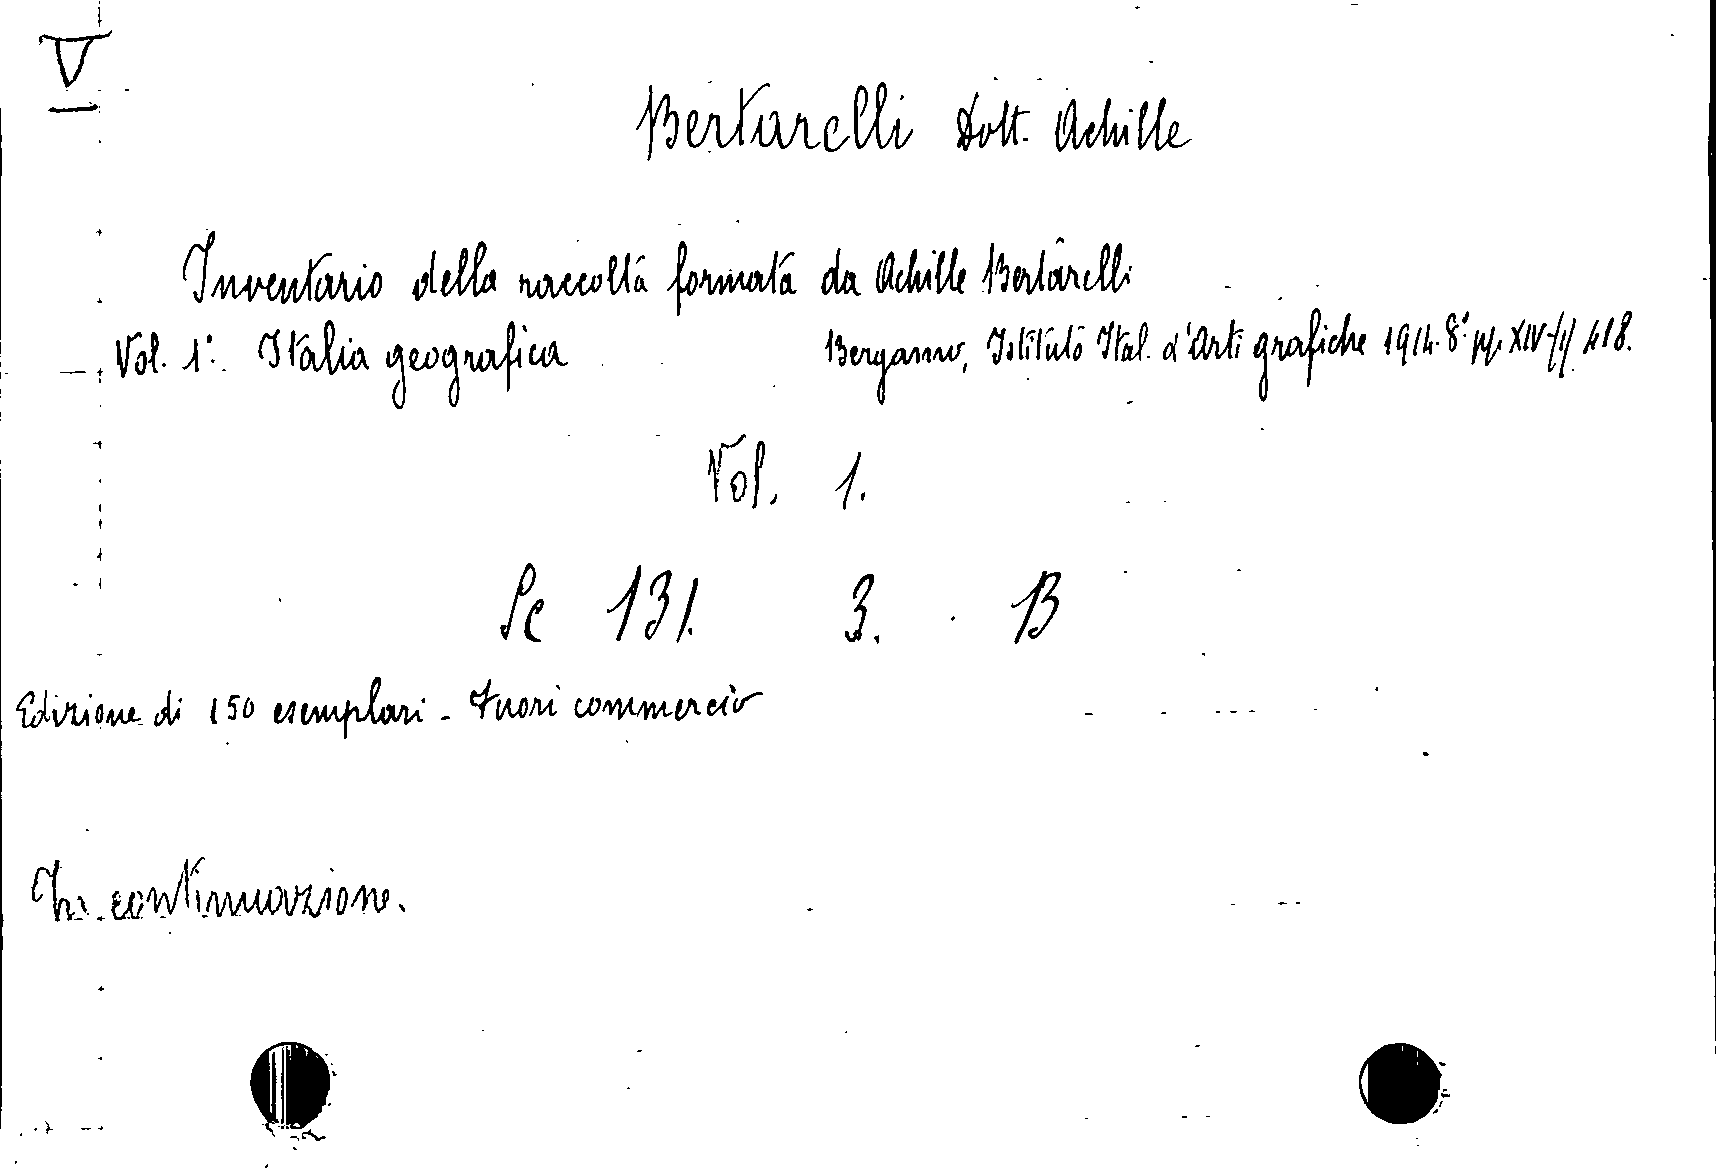 V
Bertarelli Dott. Achille
Inventario della raccolta formata da Achille Bertarelli
Vol. 1°. Italia geografica Bergamo, Istituto Ital. d'Arti grafiche 1914. 8° pp. XIV-(1) 418.
Vol. 1.
Sc 131. 3. B
Edizione di 150 esemplari - Fuori commercio
In continuazione.